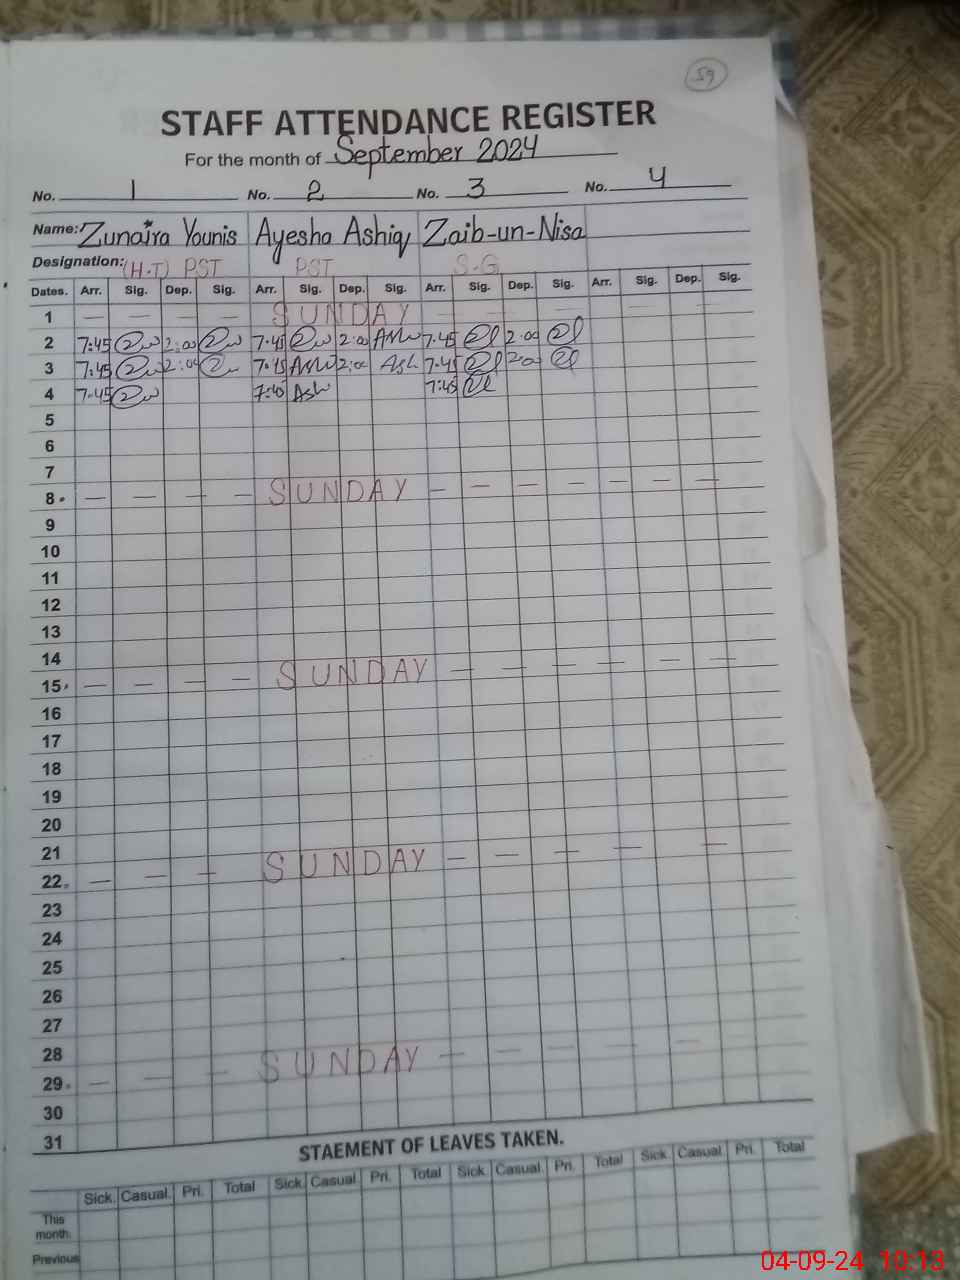 59
STAFF ATTENDANCE REGISTER
For the month of September 2024
No. 1 No. 2 No. 3 No. 4
Name: Zunaira Younis Ayesha Ashiq Zaib-un-Nisa
Designation: (H.T) PST PST S.G
Dates. Arr. Sig. Dep. Sig. Arr. Sig. Dep. Sig. Arr. Sig. Dep. Sig. Arr. Sig. Dep. Sig.
1 — — — — SUNDAY — — — — — — — —
2 7:45 2:00 7:45 2:00 Ash 7:45 2:00
3 7:45 2:00 7:45 Ash 2:00 Ash 7:45 2:00
4 7:45 7:40 Ash 7:45
5
6
7
8 — — — — SUNDAY — — — — — — —
9
10
11
12
13
14
15 — — — — SUNDAY — — — — — —
16
17
18
19
20
21
22 — — — SUNDAY — — — — —
23
24
25
26
27
28
29 — — — SUNDAY — — — — —
30
31
STAEMENT OF LEAVES TAKEN.
Sick. Casual. Pri. Total Sick. Casual. Pri. Total Sick. Casual. Pri. Total Sick. Casual. Pri. Total
This
month.
Previous
04-09-24 10:13